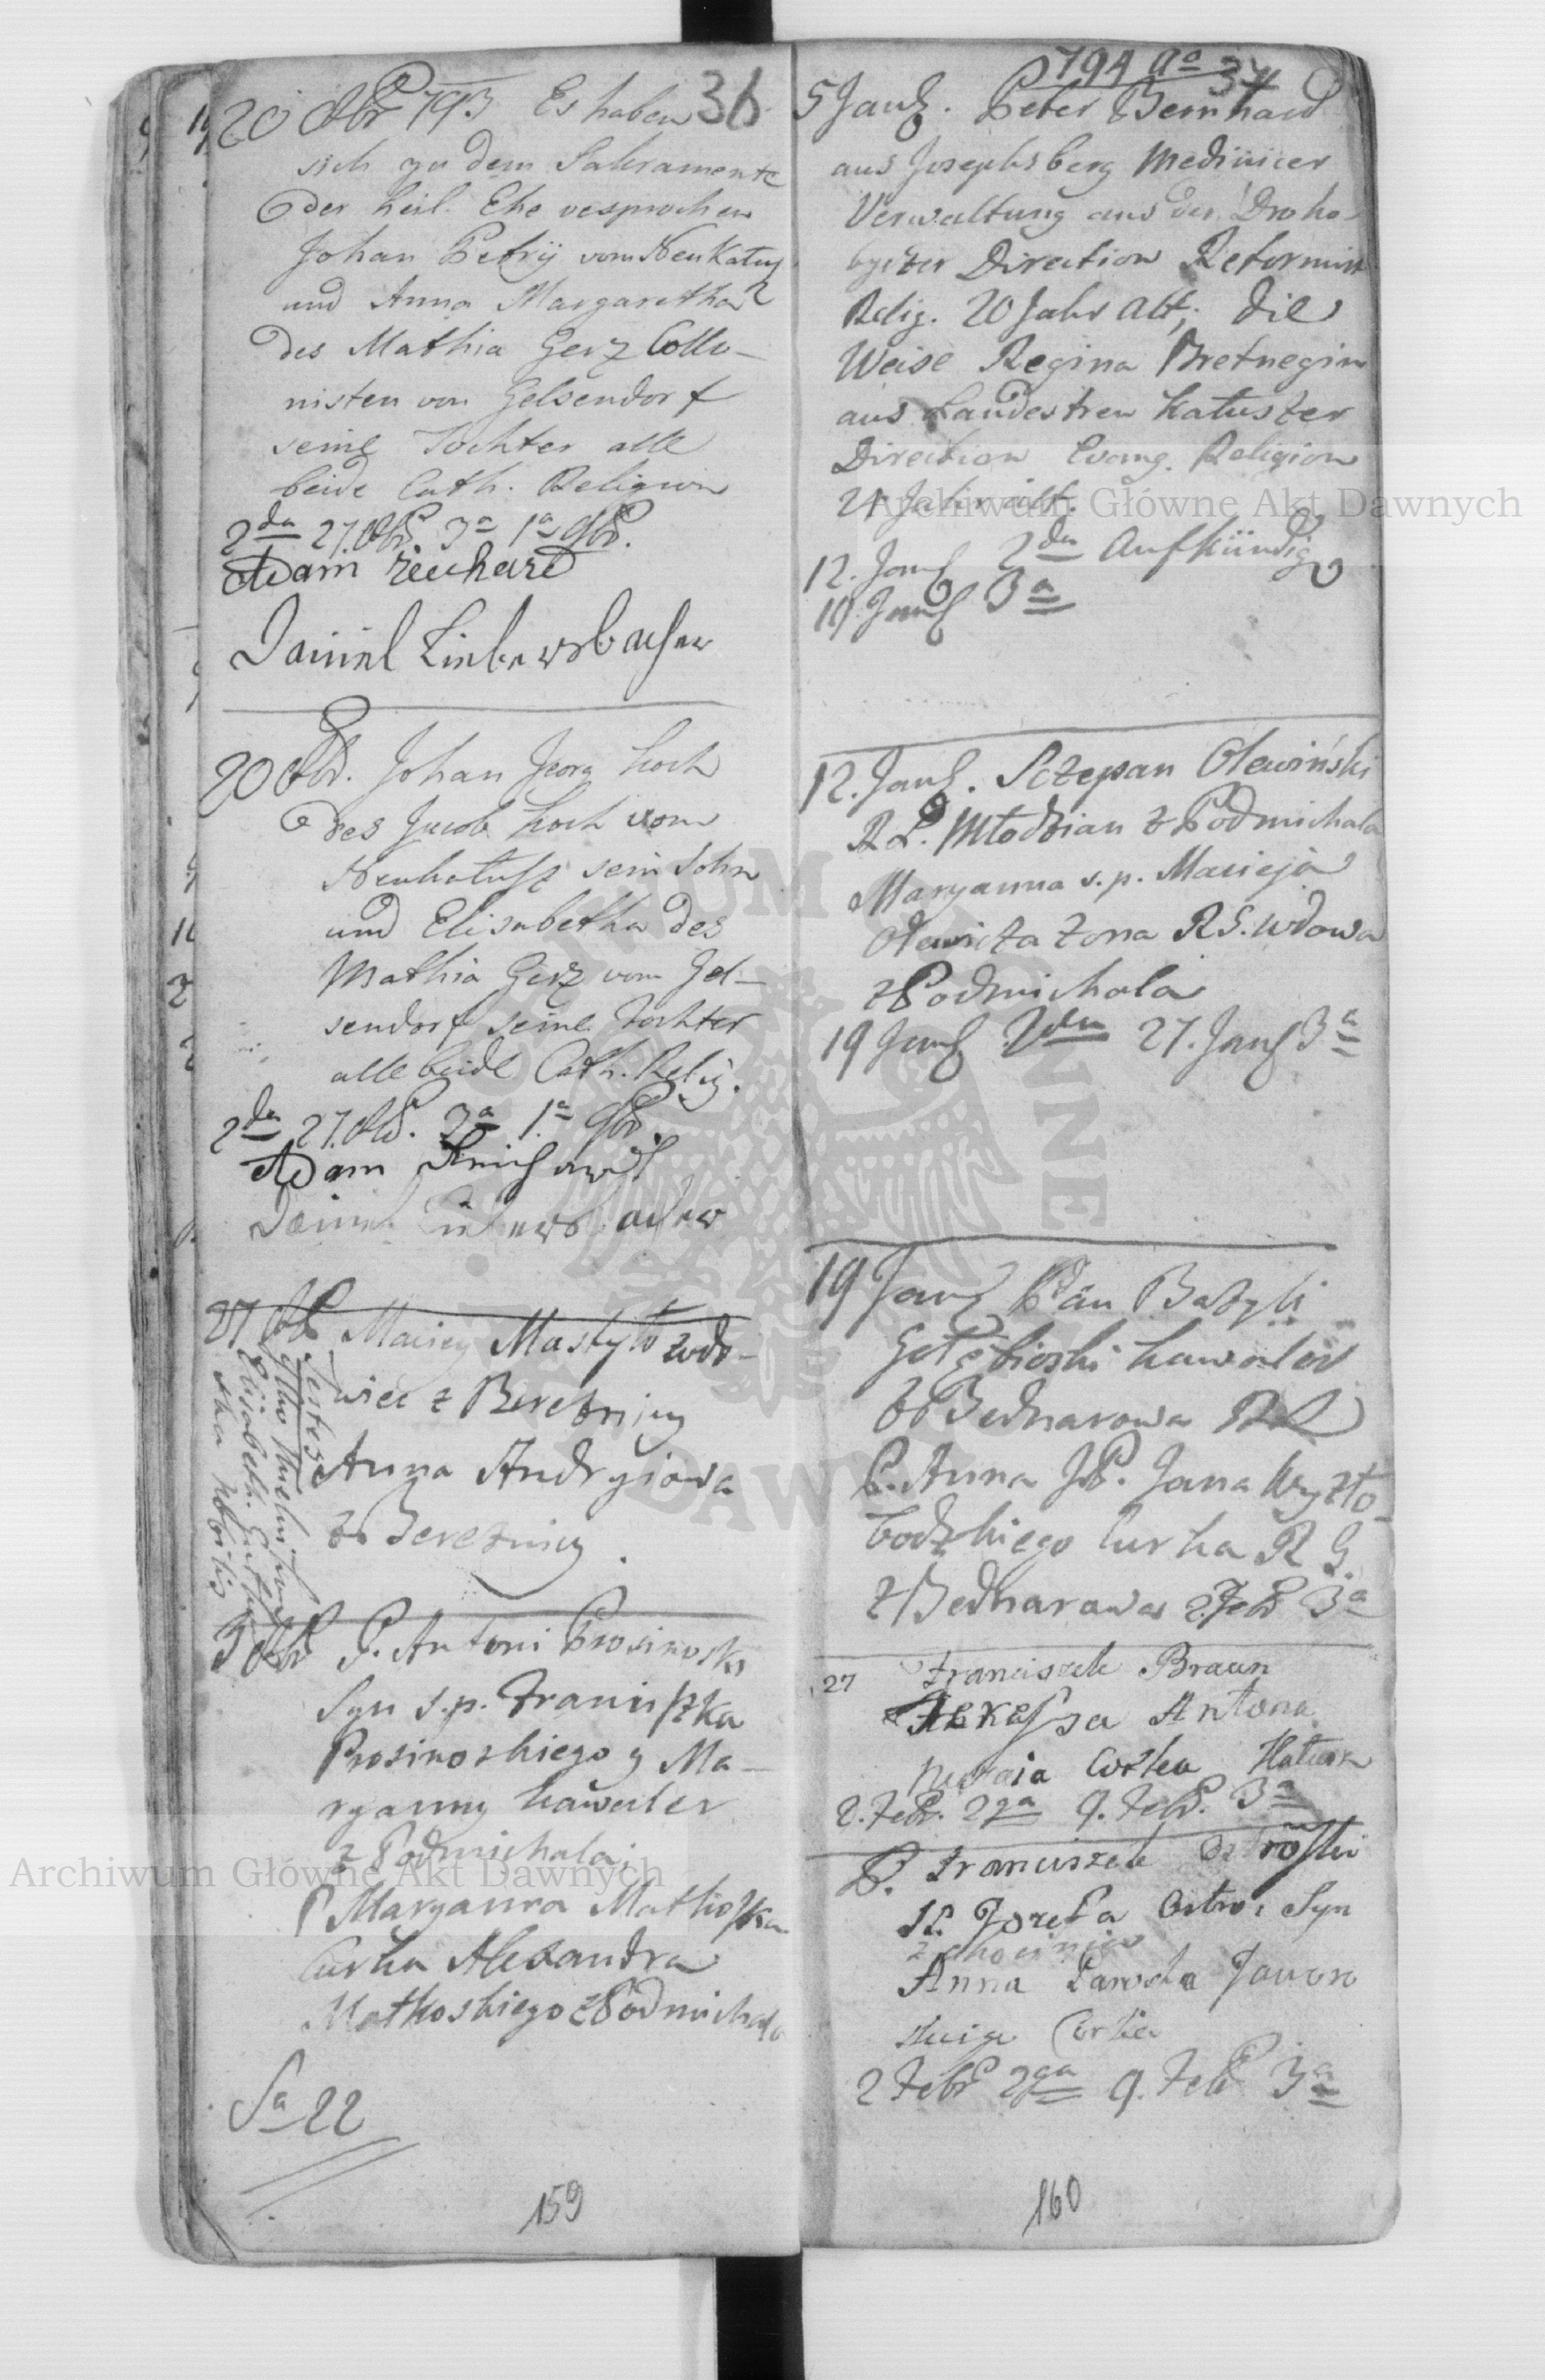 36
20 8br 793 Es haben
sich zu dem Sakramente
der heil. Ehe vesprochen
Johan Petrÿ vom Neu Kałusz
und Anna Margaretha
des Mathia Gerz Collo-
nisten von Gelsendorf
seine Tochter alle
beide Cath. Religion
2da 27. 8br 3a 1a 9br.
Adam
Daniel
20 8br. Johan Jeorg Koch
des Jacob Koch vom
sein Sohn
und Elisabetha des
Mathia Gerz vom Gel-
sendorf seine Tochter
alle beide Cath. Relig.
2da 27. 8br. 3a 1a 9br.
Adam
Daniel
27 8br Maciey Mastyło wdo-
wiec z Bereżnicy
Anna Andryiowa
z Bereżnicy.
Testes
Elisabeth
3 P. Antoni Prosinoski
Syn s.p. Franciszka
Prosinoskiego y Ma-
ryanny kawaler
z Podmichala,
P Maryanna Mathoska
Curka Alexandra
Mathoskiego z Podmichala
Sa 22
159
794 ao
37
5 Jan. Peter Bernhard
aus Josephsberg Medinicer
Verwaltung aus der Droho-
byczer Direction Reformirt
Relig. 20 Jahr alt; die
Weise Regina Bretnegin
aus Landestreu Kałuszer
Direction Evang. Religion
21 Jahr alt.
12. Jan 2da Aufkündig
19. Jan 3a
12. Jan. Sczepan Olewiński
R.L. Młodzian z Podmichala
Maryanna s.p. Macieja
żona R.G. wdowa
z Podmichala
19 Jan 2da 27. Jan 3a
19 Jan Pan Bazyli
Gołębioski kawaler
z Bednarowa RL
P. Anna JP. Jana Wyszło-
bodzkiego Curka R G.
z Bednarowa 2. Febr 3a
27 Franciszek Braun
Antona
Curka
2. Febr. 2ga 9. Febr. 3a
P. Franciszek
Jozefa Syn
Anna
Curka
2 Febr 2ga 9. Febr 3a
160
Archiwum Główne Akt Dawnych
Archiwum Główne Akt Dawnych